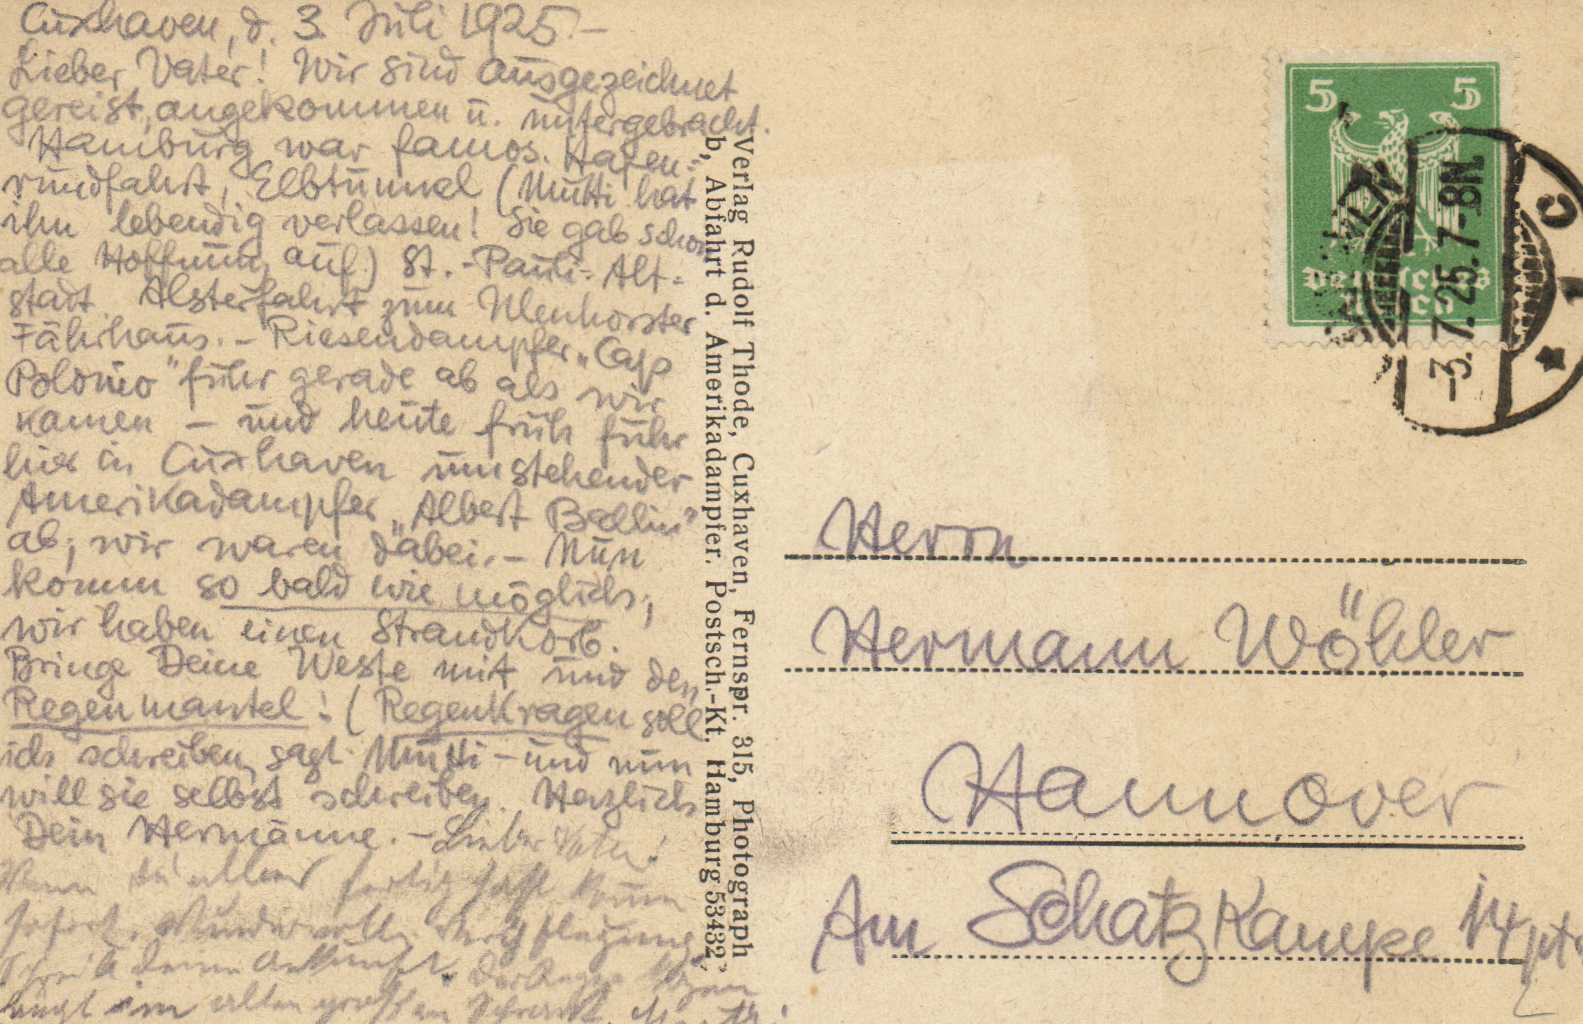 Cuxhaven, d. 3. Juli 1925.-
Lieber Vater! Wir sind ausgezeichnet
gereist, angekommen u. untergebracht.
Hamburg war famos. Hafen=
rundfahrt, Elbtunnel (Mutti hat
ihn lebendig verlassen! Sie gab schon
alle Hoffnung auf.) St.-Pauli- Alt-
stadt Alsterfahrt zum Uhlenhorster
Fährhaus. - Riesendampfer „Cap
Polonio" fuhr gerade ab als wir
kamen - und heute früh fuhr
hier in Cuxhaven umstehender
Amerikadampfer „Albert Ballin"
ab; wir waren dabei. - Nun
komm so bald wie möglich;
wir haben einen Strandkorb.
Bringe Deine Weste mit und den
Regenmantel! (Regenkragen soll
ich schreiben, sagt Mutti - und nun
will sie selbst schreiben. Herzlich
Dein Hermänne. - Lieber Vater!
Wenn du alles fertig hast komm
sofort. Wundervolle Verpflegung.
Schreib deine Ankunft. Der
liegt im alten großen Schrank. Mutti
Verlag Rudolf Thode, Cuxhaven, Fernspr. 315, Photograph
b, Abfahrt d. Amerikadampfer. Postsch.-Kt. Hamburg 53432
5 5
Deutsches
Reich
-3.7.25.7-8N.
C
1
Herrn
Hermann Wöhler
Hannover
Am Schatzkampe 14 ptr